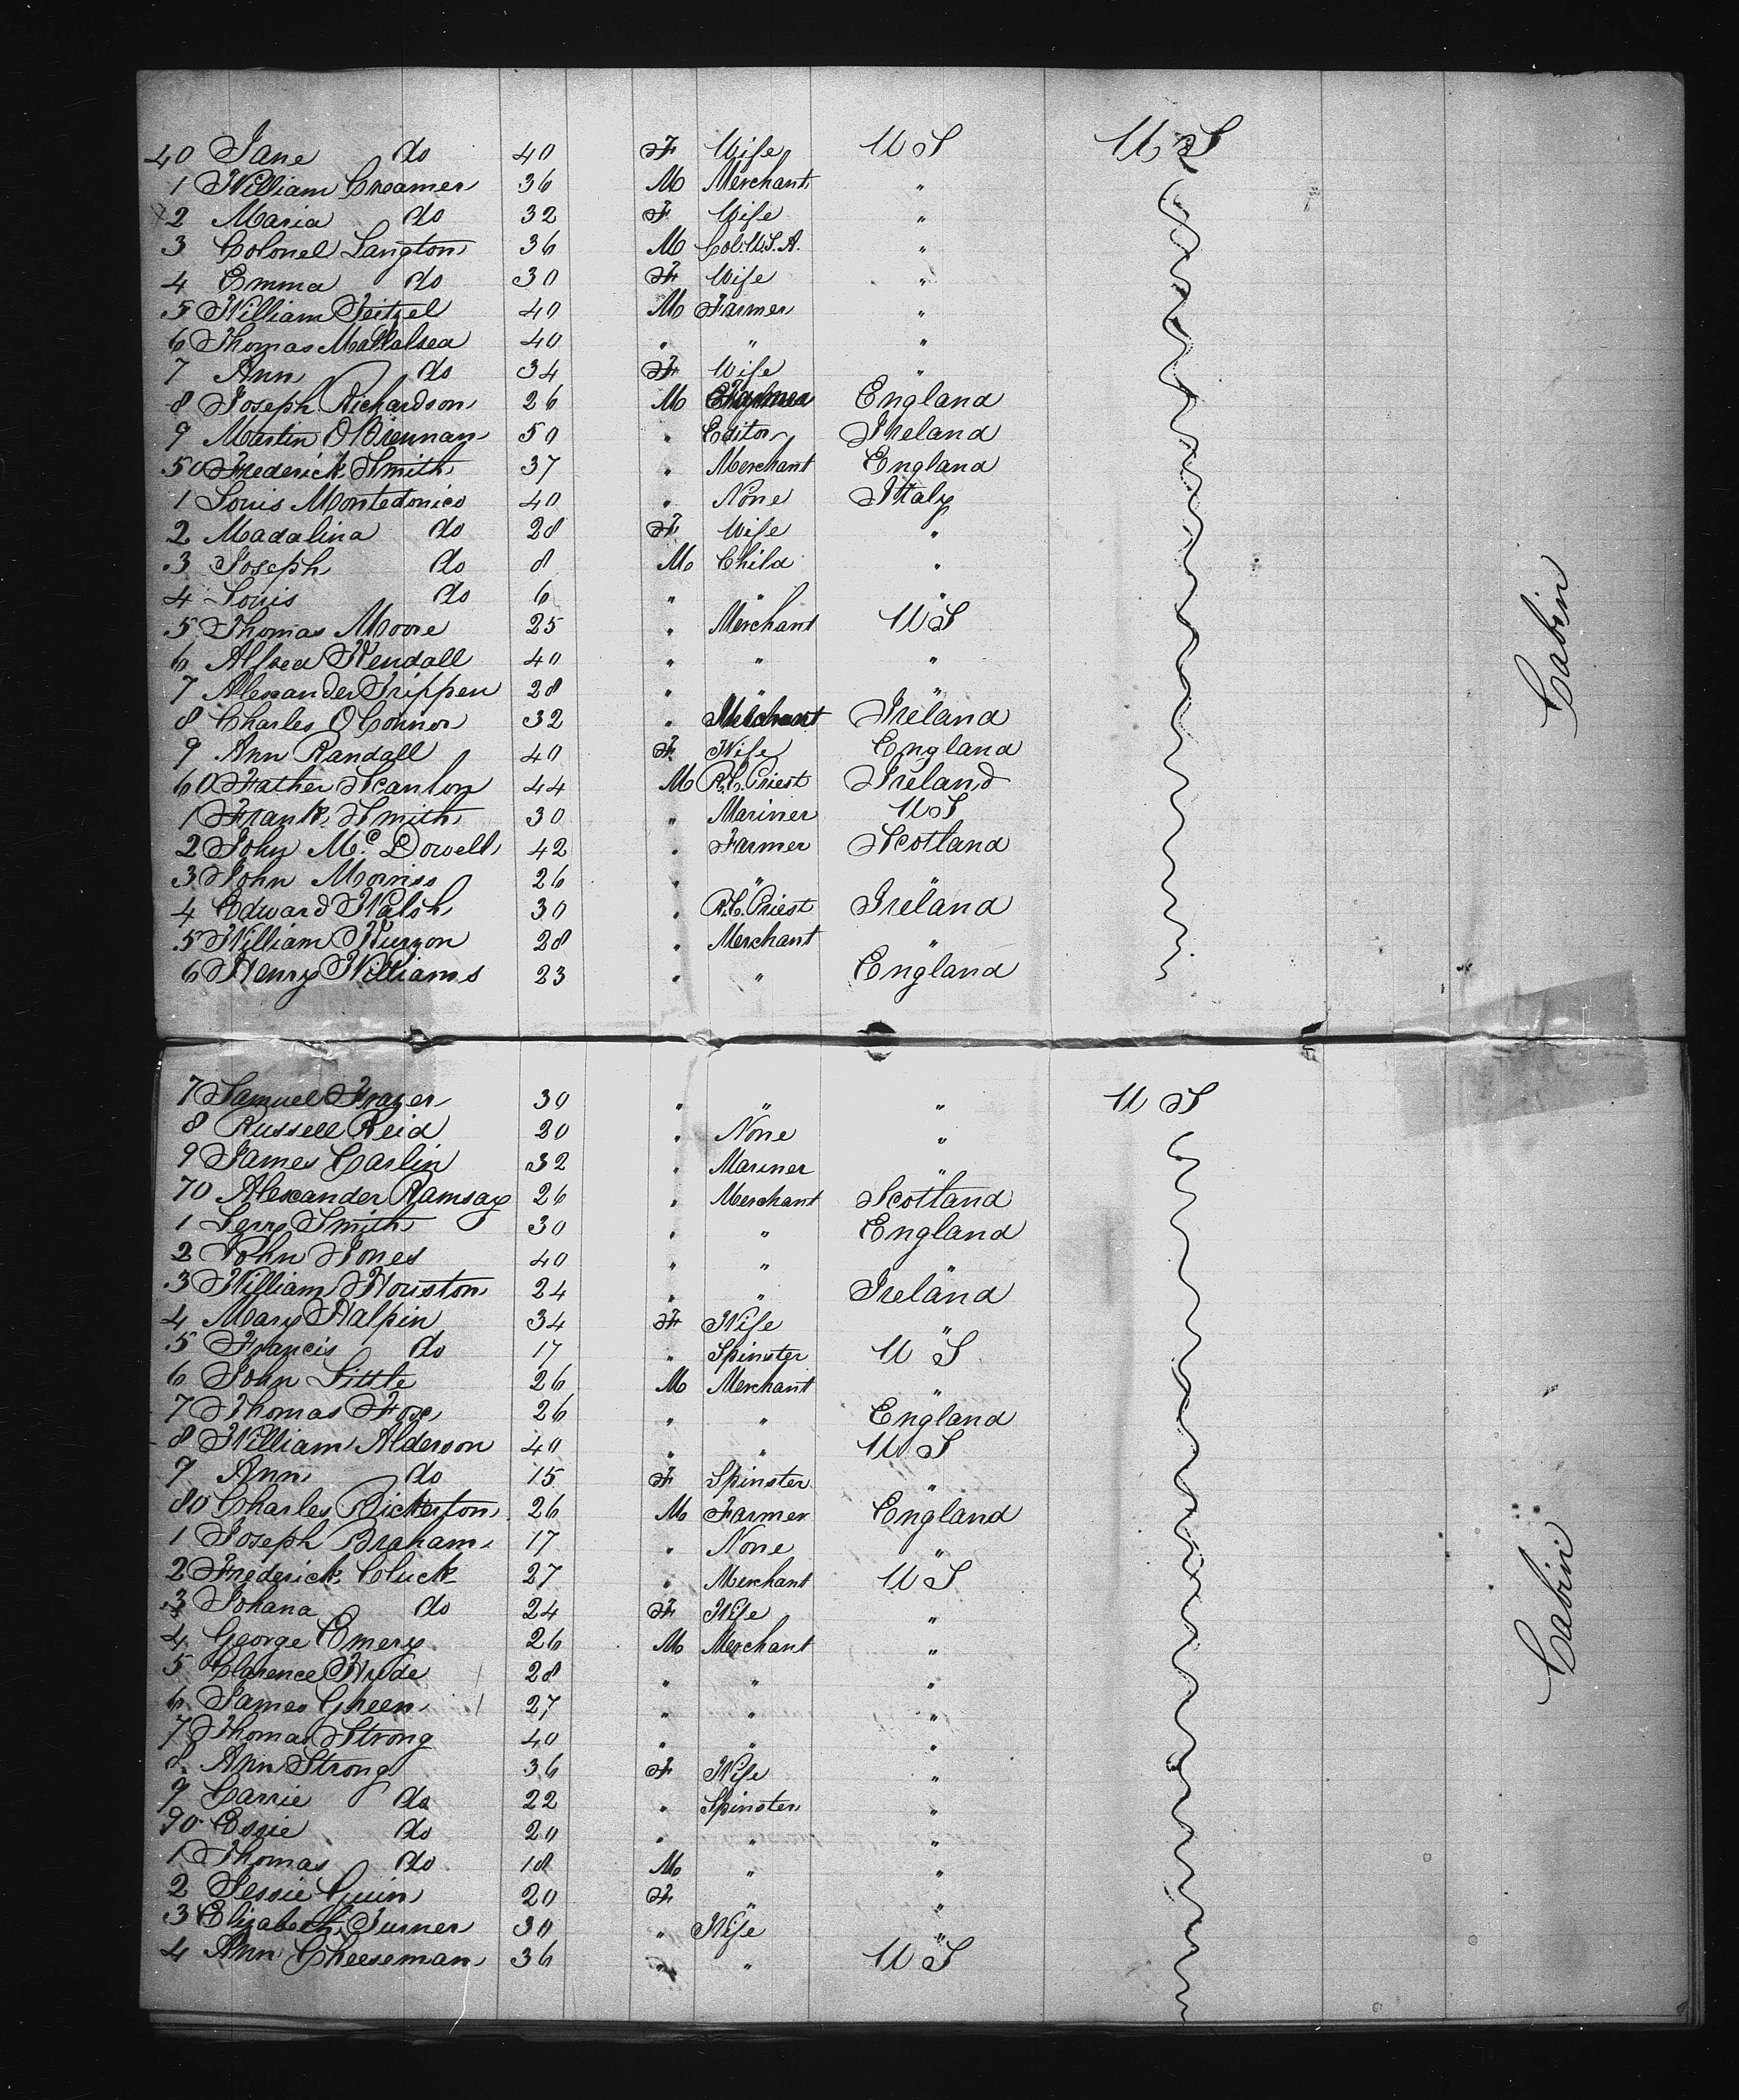 40 Jane do 40 F Wife U S U S
1 William Creamer 36 M Merchant "
2 Maria do 32 F Wife "
3 Colonel Langton 36 M Col. U.S.A. "
4 Emma do 30 F Wife "
5 William Teitzel 40 M Farmer "
6 Thomas 40 " " "
7 Ann do 34 F Wife "
8 Joseph Richardson 26 M England
9 Martin O Brennan 50 " Editor Ireland
50 Frederick Smith 37 " Merchant England
1 Louis Montedonico 40 " None Italy
2 Madalina do 28 F Wife "
3 Joseph do 8 M Child "
4 Louis do 6 " " "
5 Thomas Moore 25 " Merchant U S
6 Alfred Kendall 40 " " "
7 Alexander Trippen 28 " " "
8 Charles O Connor 32 " Merchant Ireland
9 Ann Randall 40 F Wife England
60 Father Scanlon 44 M R.C. Priest Ireland
1 Frank Smith 30 " Mariner U S
2 John Mc Dowell 42 " Farmer Scotland
3 John Morriss 26 " " "
4 Edward Walsh 30 " R.C. Priest Ireland
5 William Kurzon 28 " Merchant "
6 Henry Williams 23 " " England
Cabin
7 Samuel Frazer 30 " " " U S
8 Russell Reid 20 " None "
9 James Carlin 32 " Mariner "
70 Alexander Ramsay 26 " Merchant Scotland
1 Smith 30 " " England
2 John Jones 40 " " "
3 William Houston 24 " " Ireland
4 Mary Halpin 34 F Wife "
5 Francis do 17 " Spinster U S
6 John Little 26 M Merchant "
7 Thomas Fox 26 " " England
8 William Alderson 40 " " U S
9 Ann do 15 F Spinster "
80 Charles Bickerton 26 M Farmer England
1 Joseph Braham 17 " None "
2 Frederick Cluck 27 " Merchant U S
3 Johana do 24 F Wife "
4 George Emery 26 M Merchant "
5 Clarence Hyde 28 " " "
6 James Green 27 " " "
7 Thomas Strong 40 " " "
8 Ann Strong 36 F Wife "
9 Carrie do 22 " Spinster "
90 Essie do 20 " " "
1 Thomas do 18 M " "
2 Jessie Guin 20 F " "
3 Elizabeth Turner 30 " Wife "
4 Ann Cheeseman 36 " " U S
Cabin